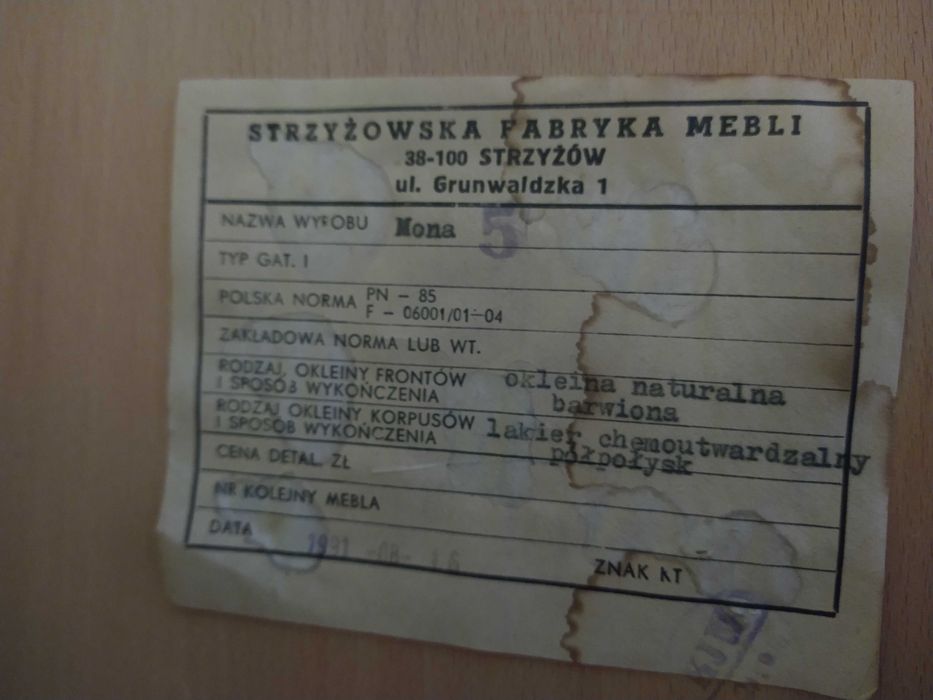 STRZYŻOWSKA FABRYKA MEBLI
38-100 STRZYŻÓW
ul. Grunwaldzka 1
NAZWA WYROBU Mona 5
TYP GAT. I
POLSKA NORMA PN - 85
F - 06001/01-04
ZAKŁADOWA NORMA LUB WT.
RODZAJ OKLEINY FRONTÓW okleina naturalna
I SPOSÓB WYKOŃCZENIA barwiona
RODZAJ OKLEINY KORPUSÓW lakier chemoutwardzalny
I SPOSÓB WYKOŃCZENIA półpołysk
CENA DETAL. ZŁ
NR KOLEJNY MEBLA
DATA 1991 -08- 16
ZNAK KT